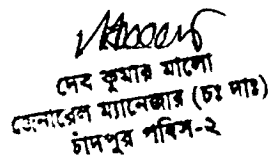 দেব কুমার মালো
জেনারেল ম্যানেজার (চঃ দাঃ)
চাঁদপুর পবিস-২